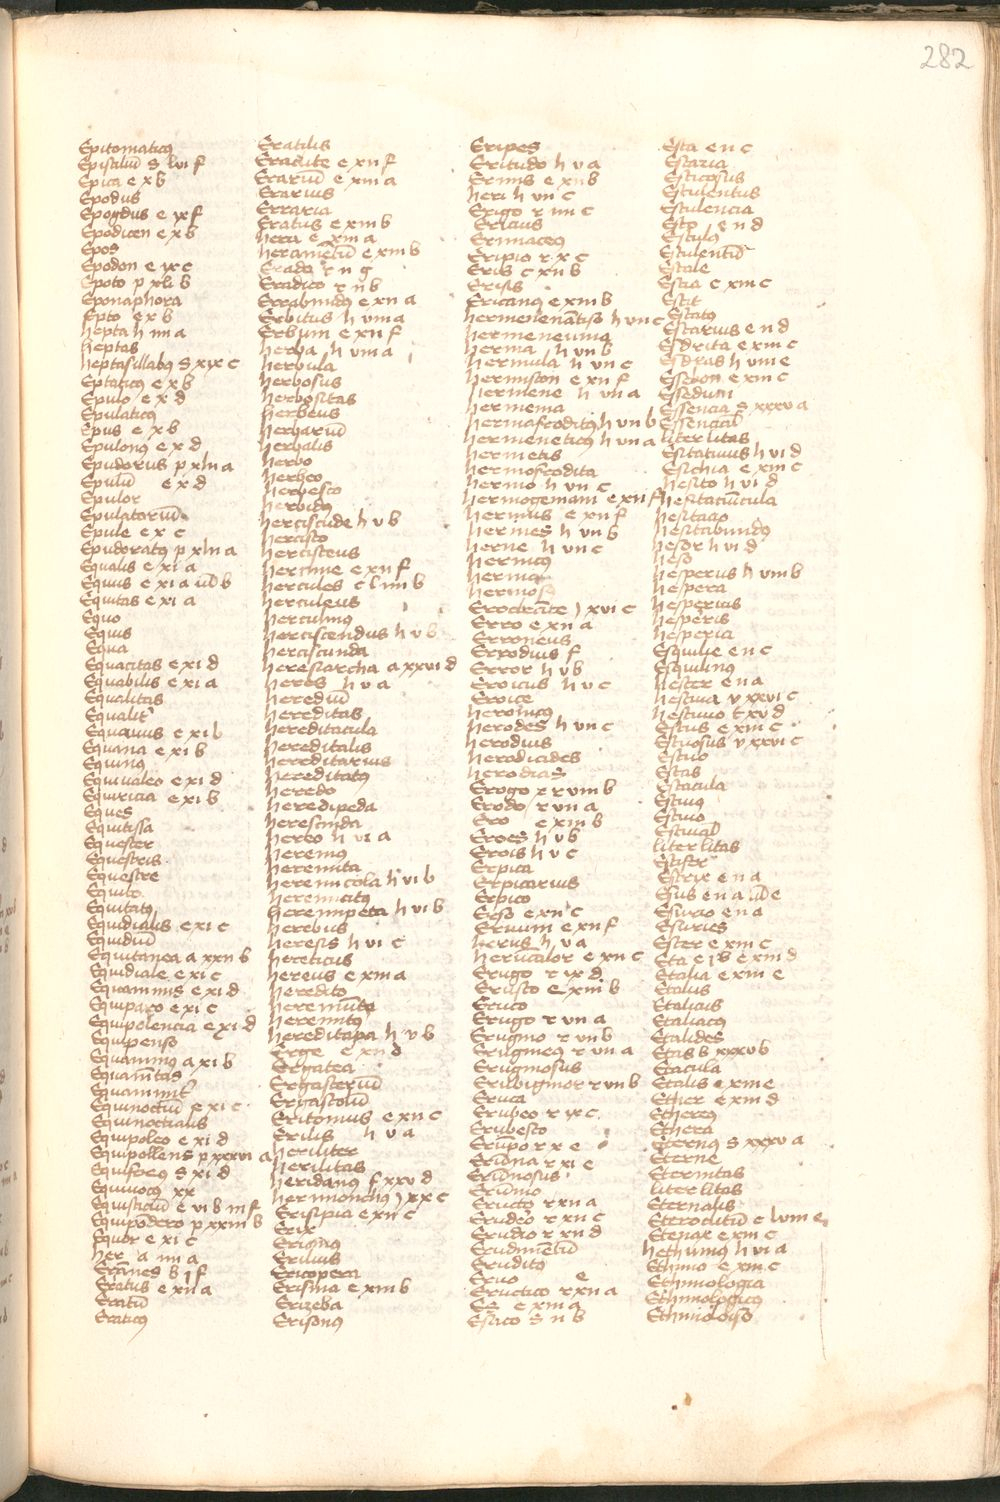 282
Epitomaticꝰ
Epistiliū s lvi f
Epica e x b
Epodus
Epogdus e ix f
Epodicen e x b
Epos
Epodon e ix c
Epoto p xli b
Eponaphora
Epto e x b
hepta h iiii a
heptas
heptasillabꝰ s xix c
Eptaticꝰ e x b
Epulo e x d
Epulaticꝰ
Epus e x b
Epulonꝰ e x d
Epidorus p xln a
Epulū e x d
Epulor
Epulatoriū
Epule e x c
Epudoratꝰ p xln a
Equalis e xi a
Equus e xi a b
Equitas e xi a
Equo
Equis
Equa
Equacitas e xi d
Equabilis e xi a
Equalitas
Equalit
Equanus e xi b
Equana e xi b
Equinꝰ
Equivaleo e xi d
Equiricia e xi b
Eques
Equitissa
Equester
Equestris
Equestre
Equito
Equitatꝰ
Equidialis e xi c
Equidiū
Equitanea a xxii b
Equidiale e xi c
Equanimis e xi d
Equiparo e xi c
Equipolencia e xi d
Equipenso
Equanimꝰ a xi b
Equanītas
Equanimit
Equinoctiū e xi c
Equinoctialis
Equipoleo e xi d
Equipollens p xxxvi a
Equiferꝰ s xi d
Equivocꝰ xx
Equisticiū e vi b iii f
Equipōdero p xxiii b
Equor e xi c
her a iiii a
Erānes b i f
Eratus e xii a
Eratū
Eraticꝰ
Eratilis
Eradite e xii f
Erariū e xiii a
Erarius
Erraria
Eratus e xiii b
hera e xiii a
heramētū e xiii b
Erado r ii g
Eradico r ii b
Errabundꝰ e xii a
Erbitus h viii a
Erbum e xii f
herba h viii a
herbula
herbosus
herbositas
herbeus
herbariū
herbalis
herbo
herbeo
herbesco
herbidꝰ
herciscude h v b
hercisco
herciseus
hercine e xii f
hercules c l iiii b
herculeus
herculinꝰ
herciscendus h v b
herciscunda
heresiarcha a xxvi d
heres h v a
herediū
hereditas
hereditacula
hereditalis
hereditarius
hereditatꝰ
heredo
heredipeda
herescinda
hereo h vi a
heremꝰ
heremita
heremicola h vi b
heremiticꝰ
heremipeta h vi b
herebus
heresis h vi c
hereticus
hereus e xiii a
heredito
Heremitꝰ
hereditapa h v b
Erge e xii d
Ergatea
Ergasteriū
Ergastolū
Eritomius e xii c
Erilis h v a
heriliter
herilitas
heridanꝰ f xxv d
herimonchꝰ) xx c
Erisipia e xii c
Erix
Erisnꝰ
Erilius
Ericopera
Erisma e xiii b
Erizeba
Erisonꝰ
Eripes
Eritudo h v a
Erinis e xii b
heri h vii c
Erigo r iiii c
Ericius
Erinaceꝰ
Eripio r x c
Eris c xii b
Erisis
Ericanꝰ e xiii b
hermeneuma
herma h vii b
hermula h vii c
hermiston e xii f
hermene h vii a
hermema
hermafroditꝰ h vii b
hermeneticꝰ h vii a
hermetis
hermofrodita
hermo h vii c
hermogemani e xii f
hermus e xii f
hermes h vii b
herne h vii c
hernicꝰ
hernia
herniosꝰ
Erocrāte ) xvi c
Erro e xii a
Erroneus
Errodius f
Error h v b
Eroicus h v c
Eroice
heronicꝰ
herodes h vii c
herodius
herodicides
herodias
Erogo r r viii b
Erodo r vii a
Ero e xiii b
Eroes h v b
Erois h v c
Erpica
Erpicarius
Erpico
Erso e xii c
Eruum e xii f
herus h v a
Erugo r ix d
Erusto e xiii b
Eruco
Erugo r vii a
Erugino r vii b
Erugineꝰ r vii a
Eruginosus
Erubiginor r vii b
Eruca
Erubeo r ix c
Erubesco
Erūpo r x e
Erūna r xi e
Erūnosus
Erūnio
Eructo r xii a
Erudeo r xii c
Erudio r xii d
Erudimētū
Eruditꝰ
Eruo e
Eructico r xii a
Es e xiii a
Esaco s ii b
Esca e ii c
Escaria
Esticosus
Esculentus
Esculencia
Esto e ii d
Esculꝰ
Esculentū
Escale
Escia c xiii c
Escit
Escatꝰ
Escarius e ii d
Esdrita e xiii c
Esdras h viii e
Essebon e xiii c
Essedum
Essencia s xxxv a
Essencial
liter litas
Esitativus h vi d
Esichia e xiii c
hesito h vi d
hesitaciūcula
hesitacio
hesitabundꝰ
hesor h vi d
heso
hesperus h viii b
hespera
hesperius
hesperis
hesperia
Esquilie e ii c
Esquilinꝰ
hester e ii a
hestiva v xxvi c
hestivo t xv d
Estus e xiii c
Estuosus v xxvi c
Estuo
Estas
Estacula
Estivꝰ
Estivo
Estival
liter litas
Estifer
Estrix e ii a
Esus e ii a e
Esurio e ii a
Esuries
Ester e xiii c
Eta e i b e xiii d
Etalia e xiii e
Etalus
Etalicus
Etaliacꝰ
Etalides
Etas b xxxv b
Etacula
Etalis e xiii e
Ether e xiii d
Ethereꝰ
Ethera
Eternꝰ s xxxv a
Eterne
Eternitas
liter litas
Eternalis
Eteroclitū c lviii e
Etenax e xiii c
hethimus h vi a
Ethimo e xiii c
Ethimologia
Ethimologicꝰ
Ethimoloiso